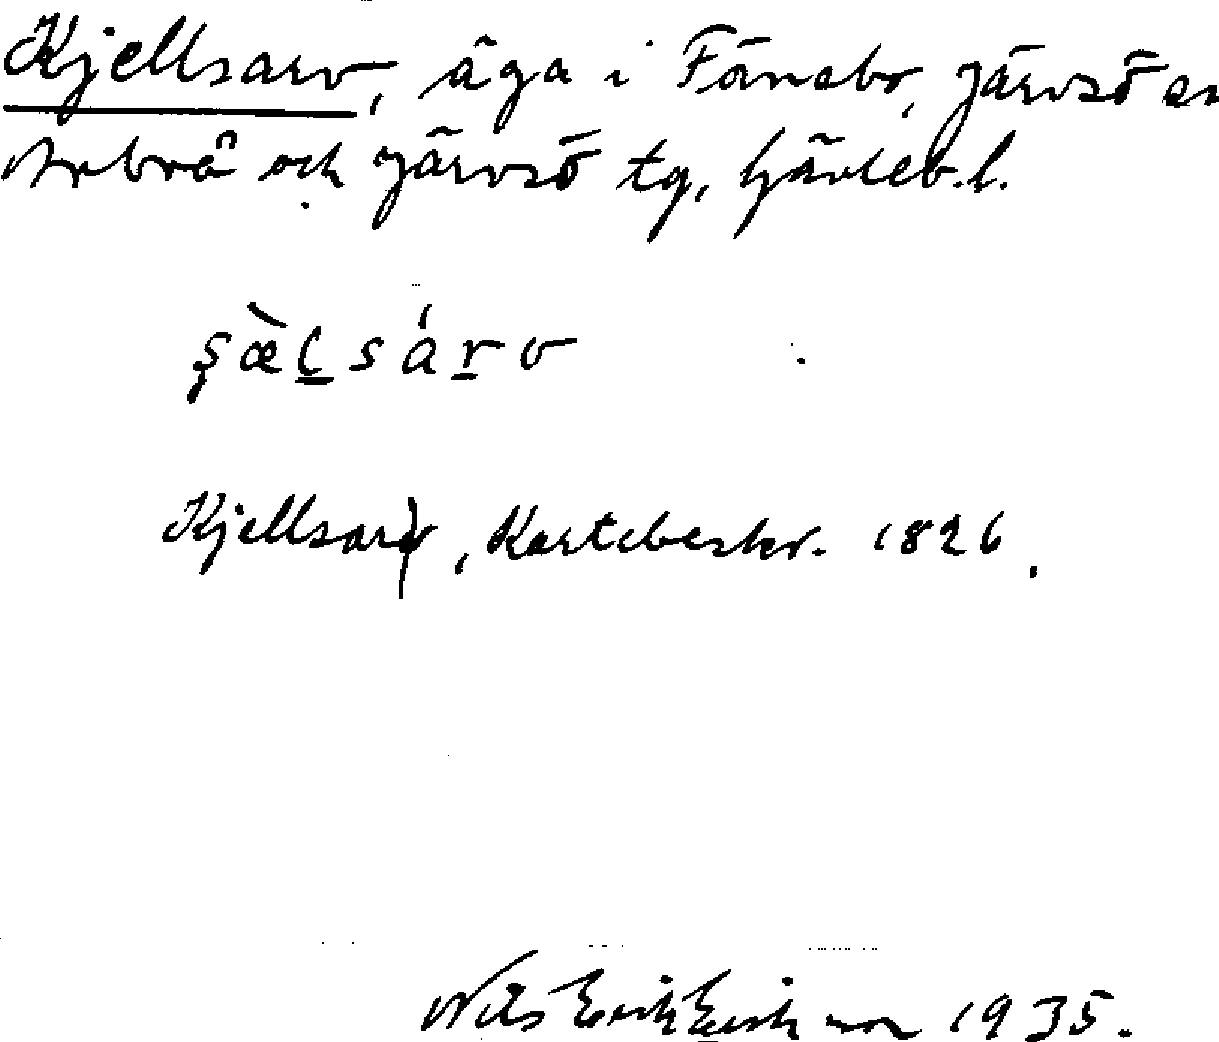 Kjellsarv, äga i Fänebo, Järvsö sn
Arbrå och Järvsö tg, Gävleb.l.
s̨æ̀l̠sár̠v
Kjellsarf, Kartebeskr. 1826.
Nils Erik Eriksson 1935.